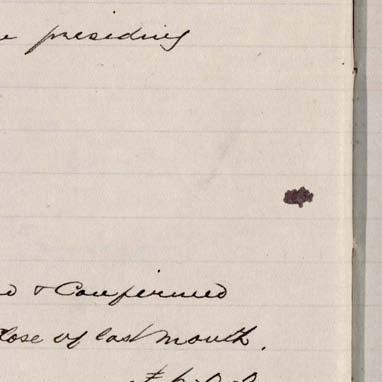 presiding
& Confirmed
lose of last month.
£ s. d.